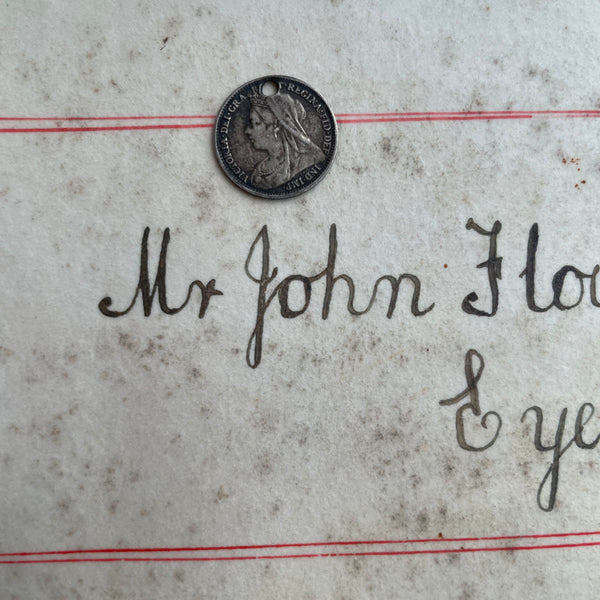 VICTORIA·DEI·GRA· REGINA·FID·DEF· IND·IMP·
Mr John Floo
Eye